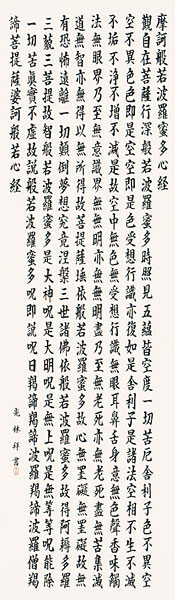 摩訶般若波羅蜜多心經
觀自在菩薩行深般若波羅蜜多時照見五蘊皆空度一切苦厄舍利子色不異空
空不異色色即是空空即是色受想行識亦復如是舍利子是諸法空相不生不滅
不垢不淨不增不減是故空中無色無受想行識無眼耳鼻舌身意無色聲香味觸
法無眼界乃至無意識界無無明亦無無明盡乃至無老死亦無老死盡無苦集滅
道無智亦無得以無所得故菩提薩埵依般若波羅蜜多故心無罣礙無罣礙故無
有恐怖遠離一切顛倒夢想究竟涅槃三世諸佛依般若波羅蜜多故得阿耨多羅
三藐三菩提故知般若波羅蜜多是大神呪是大明呪是無上呪是無等等呪能除
一切苦真實不虛故說般若波羅蜜多呪即說呪曰羯諦羯諦波羅羯諦波羅僧羯
諦菩提薩婆訶般若心經
林拜書